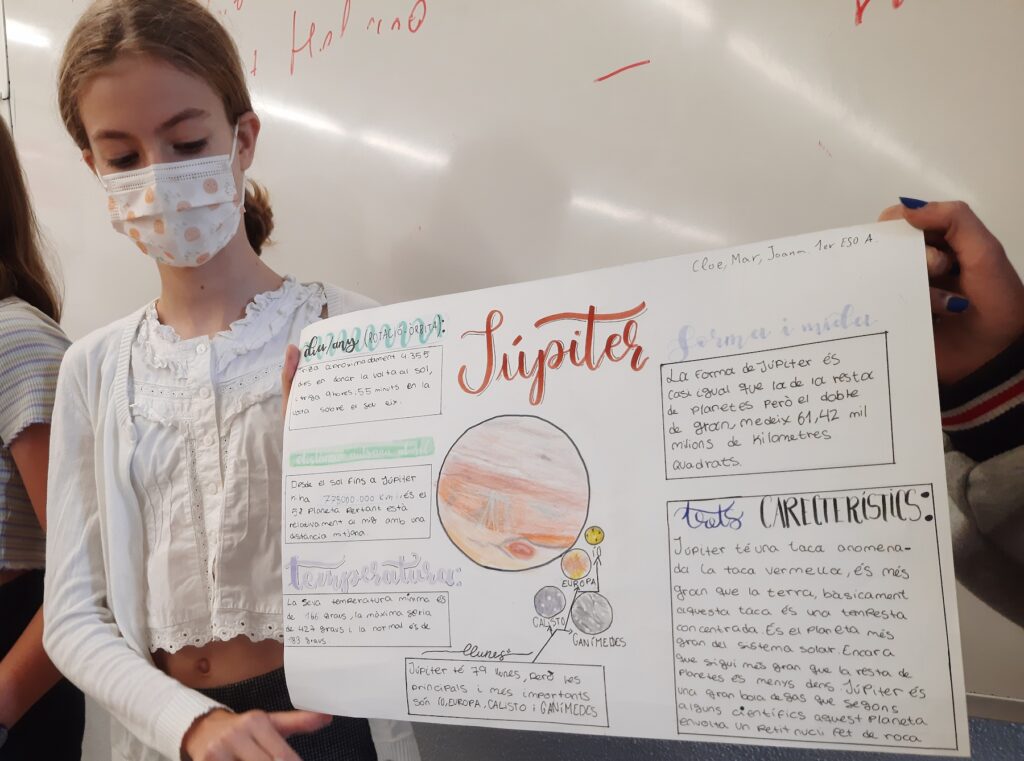 Cloe, Mar, Joana. 1er ESO A.
Júpiter
dia/any (ROTACIÓ-ÒRBITA):
Triga aproximadament 4.355
dies en donar la volta al sol,
i triga 9 hores, 55 minuts en la
volta sobre el seu eix.
Desde el sol fins a Júpiter
hi ha 778000.000 Km i és el
5è Planeta Pertant està
relativament al mig amb una
distància mitjana.
temperatura:
La seva temperatura mínima és
de 166 graus, la màxima seria
de 427 graus i la normal és de
graus
llunes:
Júpiter té 79 llunes, però les
principals i més importants
són IO, EUROPA, CALISTO i GANÍMEDES
IO
EUROPA
CALISTO
GANÍMEDES
forma i mida
La forma de Júpiter és
casi igual que la de la resta
de planetes però el doble
de gran, medeix 61,42 mil
milions de kilometres
quadrats.
trets CARECTERÍSTICS:
Júpiter té una taca anomena-
da la taca vermella, és més
gran que la terra, bàsicament
aquesta taca és una tempesta
concentrada. És el planeta més
gran del sistema solar. Encara
que sigui més gran que la resta de
planetes és menys dens. Júpiter és
una gran bola de gas que segons
alguns científics aquest planeta
envolta un petit nucli fet de roca